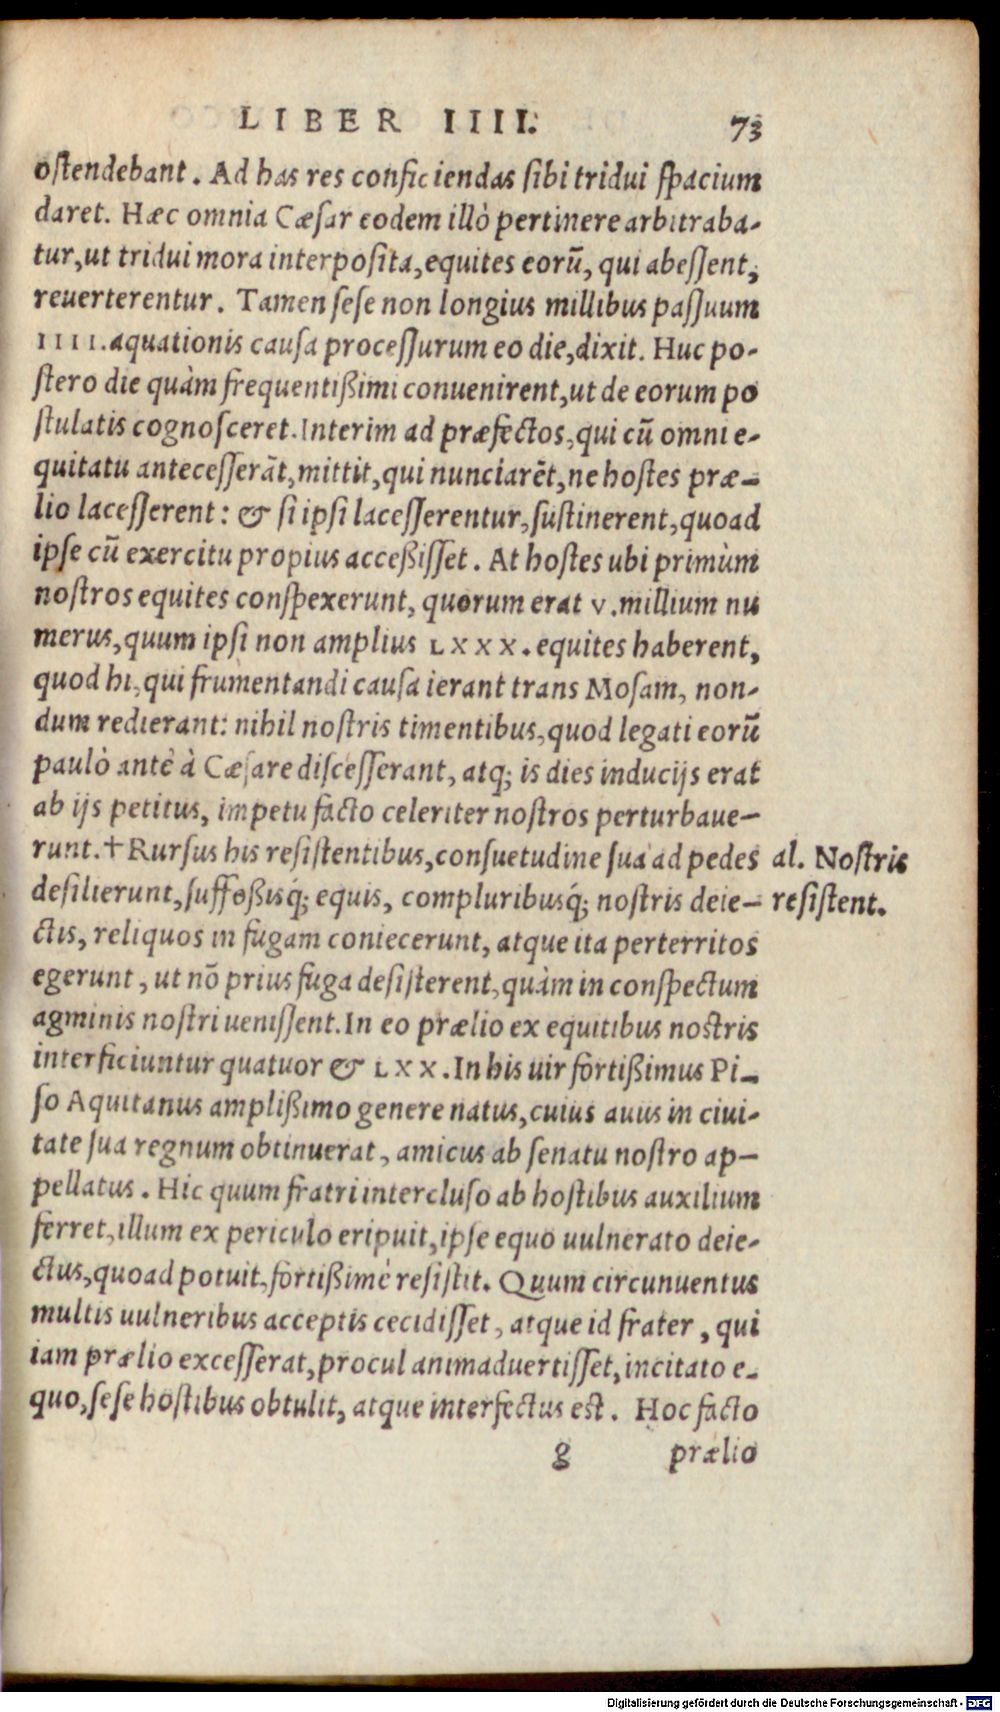 LIBER IIII. 73
ostendebant. Ad has res conficiendas sibi tridui spacium
daret. Hæc omnia Cæsar eodem illò pertinere arbitraba-
tur, ut tridui mora interposita, equites eorū, qui abessent,
reuerterentur. Tamen sese non longius millibus passuum
IIII. aquationis causa processurum eo die, dixit. Huc po-
stero die quàm frequentißimi conuenirent, ut de eorum po
stulatis cognosceret. Interim ad præfectos, qui cū omni e-
quitatu antecesserāt, mittit, qui nunciarēt, ne hostes præ-
lio lacesserent: & si ipsi lacesserentur, sustinerent, quoad
ipse cū exercitu propius acceßisset. At hostes ubi primùm
nostros equites conspexerunt, quorum erat V. millium nu
merus, quum ipsi non amplius LXXX. equites haberent,
quod hi, qui frumentandi causa ierant trans Mosam, non-
dum redierant: nihil nostris timentibus, quod legati eorū
paulò antè à Cæsare discesserant, atq; is dies inducijs erat
ab ijs petitus, impetu facto celeriter nostros perturbaue-
runt. †Rursus his resistentibus, consuetudine sua ad pedes
desilierunt, suffoßisq́; equis, compluribusq́; nostris deie-
ctis, reliquos in fugam coniecerunt, atque ita perterritos
egerunt, ut nō prius fuga desisterent, quàm in conspectum
agminis nostri uenissent. In eo prælio ex equitibus nostris
interficiuntur quatuor & LXX. In his uir fortißimus Pi-
so Aquitanus amplißimo genere natus, cuius auus in ciui-
tate sua regnum obtinuerat, amicus ab senatu nostro ap-
pellatus. Hic quum fratri intercluso ab hostibus auxilium
ferret, illum ex periculo eripuit, ipse equo uulnerato deie-
ctus, quoad potuit, fortißimè resistit. Quum circunuentus
multis uulneribus acceptis cecidisset, atque id frater, qui
iam prælio excesserat, procul animaduertisset, incitato e-
quo, sese hostibus obtulit, atque interfectus est. Hoc facto
g prælio
al. Nostris
resistent.
Digitalisierung gefördert durch die Deutsche Forschungsgemeinschaft - DFG